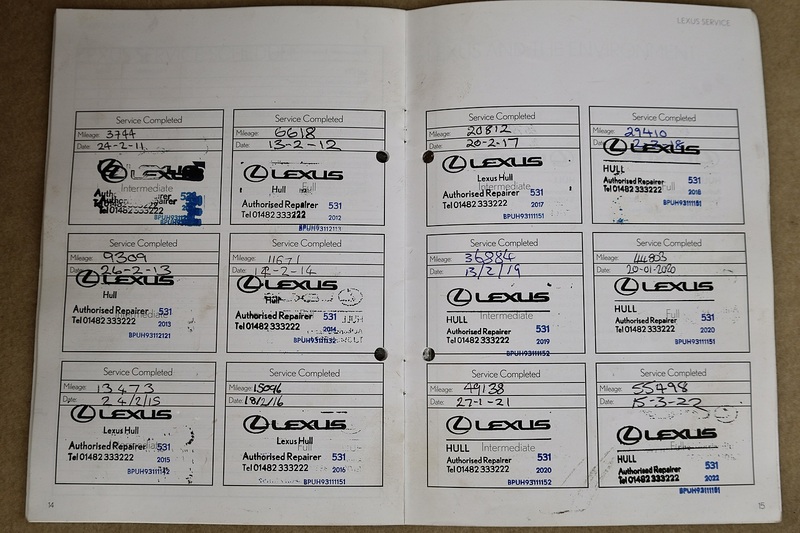 LEXUS SERVICE
Service Completed
Mileage: 3744
Date: 24-2-11
LEXUS
Intermediate
Authorised Repairer 531
Tel 01482 333222
Service Completed
Mileage: 6618
Date: 13-2-12
LEXUS
Hull Full
Authorised Repairer 531
Tel 01482 333222 2012
Service Completed
Mileage: 20812
Date: 20-2-17
LEXUS
Lexus Hull
Intermediate
Authorised Repairer 531
Tel 01482 333222 2017
BPUH93111151
Service Completed
Mileage: 29410
Date:
LEXUS
HULL
Full
Authorised Repairer 531
Tel 01482 333222 2018
BPUH93111151
Service Completed
Mileage: 9309
Date: 26-2-13
LEXUS
Hull
Authorised Repairer 531
Intermediate
Tel 01482 333222 2013
BPUH93112121
Service Completed
Mileage: 11671
Date: 12-2-14
LEXUS
Hull
Authorised Repairer 531
Full
Tel 01482 333222 2014
Service Completed
Mileage: 36884
Date: 13/2/19
LEXUS
HULL
Intermediate
Authorised Repairer 531
Tel 01482 333222 2019
BPUH93111152
Service Completed
Mileage: 44803
Date: 20-01-2020
LEXUS
HULL
Full
Authorised Repairer 531
Tel 01482 333222 2020
BPUH93111151
Service Completed
Mileage: 13473
Date: 24/2/15
LEXUS
Lexus Hull
Authorised Repairer 531
Intermediate
Tel 01482 333222 2015
Service Completed
Mileage: 15096
Date: 18/2/16
LEXUS
Lexus Hull
Full
Authorised Repairer 531
Tel 01482 333222 2016
BPUH93111151
Service Completed
Mileage: 49138
Date: 27-1-21
LEXUS
HULL Intermediate
Authorised Repairer 531
Tel 01482 333222 2020
BPUH93111152
Service Completed
Mileage: 55498
Date: 15-3-22
LEXUS
HULL
Authorised Repairer 531
Tel 01482 333222 2022
14
15